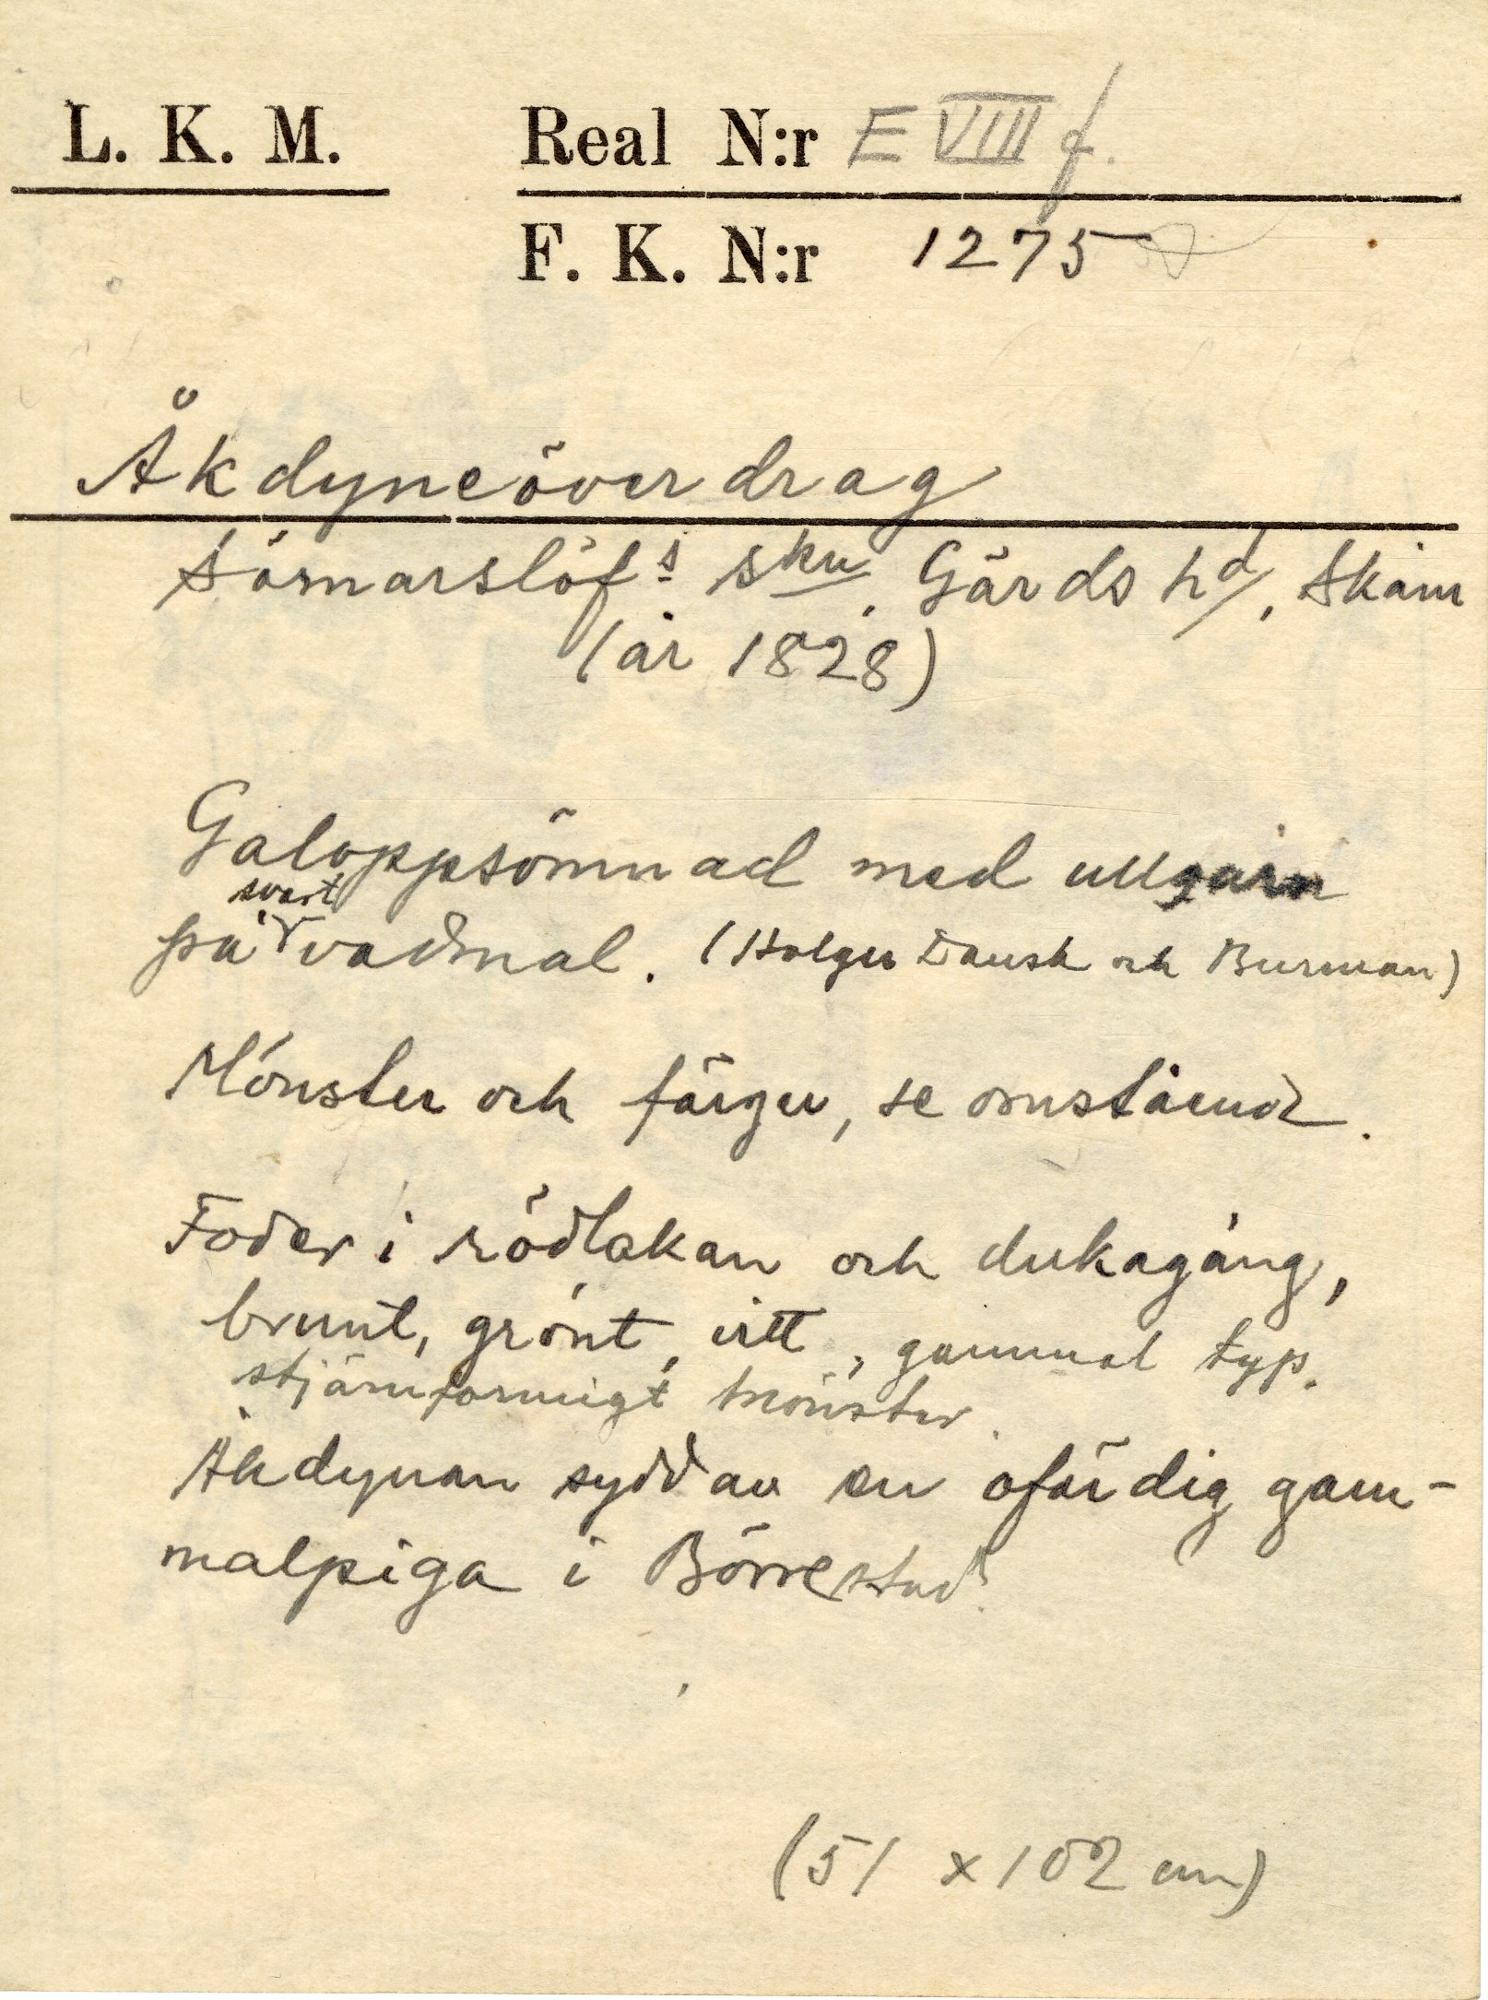 L. K. M. Real N:r E VIII f.
F. K. N:r 1275
Åkdyneöverdrag
Sörnarslöfs sku. Gärds hd, Skåne
(år 1828)
Galoppsömnad med ullgarn
svart
på vadmal. (Holger Dansk och Burman)
Mönster och färger, se omstående.
Foder i rödlakan och dukagång,
brunt, grönt, vitt, gammal typ.
stjärnformigt mönster.
Åkdynan sydd av en ofärdig gam-
malpiga i Börrestad.
(51 x 102 cm)